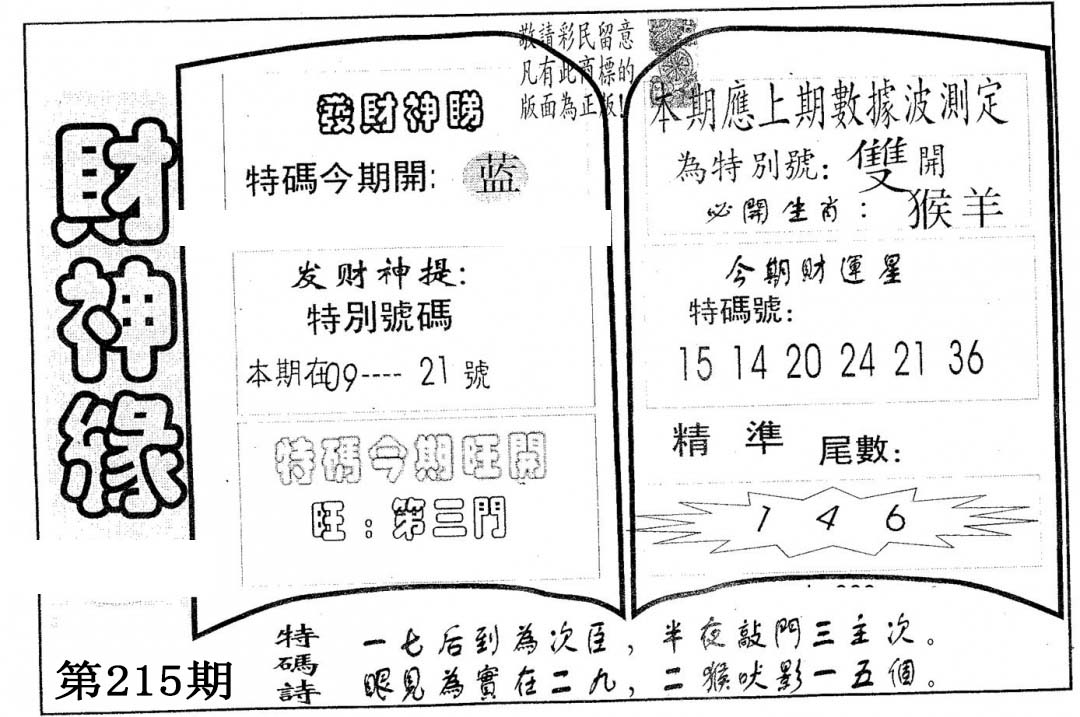 財神緣
敬請彩民留意
凡有此商標的
版面為正版!
發財神睇
特碼今期開: 蓝
发财神提:
特別號碼
本期在09---- 21 號
特碼今期旺開
旺:第三門
本期應上期數據波測定
為特別號: 雙開
必開生肖: 猴羊
今期財運星
特碼號:
15 14 20 24 21 36
精 準 尾數:
1 4 6
特碼詩
一七后到為次臣, 半夜敲門三主次。
眼見為實在二九, 二猴吠影一五個。
第215期